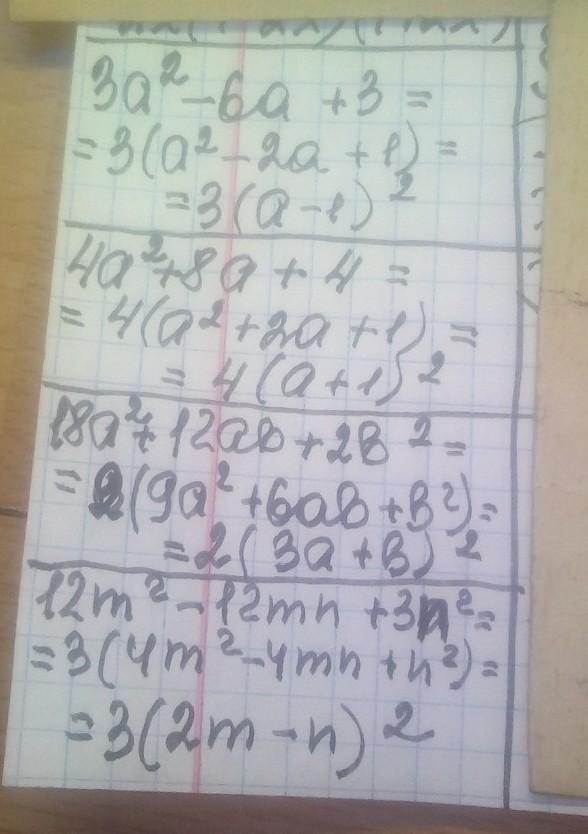 3a² - 6a + 3 =
= 3(a² - 2a + 1) =
= 3(a - 1)²
4a² + 8a + 4 =
= 4(a² + 2a + 1) =
= 4(a + 1)²
18a² + 12ab + 2b² =
= 2(9a² + 6ab + b²) =
= 2(3a + b)²
12m² - 12mn + 3n² =
= 3(4m² - 4mn + n²) =
= 3(2m - n)²